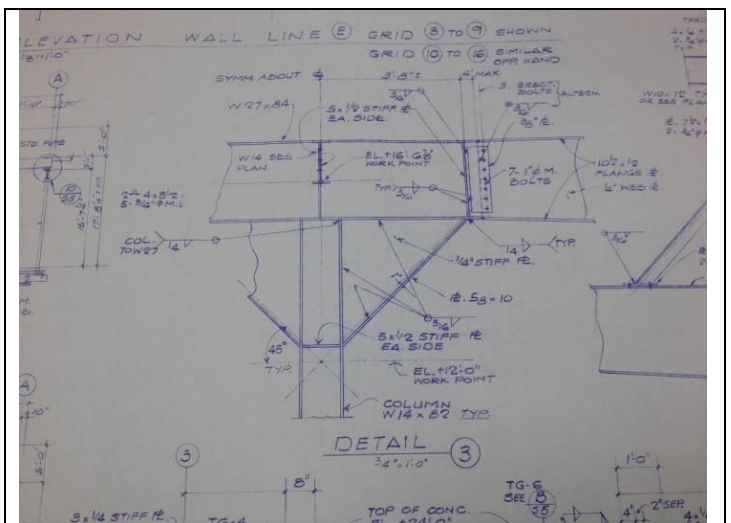 ELEVATION WALL LINE E GRID 8 TO 9 SHOWN
GRID 10 TO 16 SIMILAR
OPP. HAND
1/8"=1'-0"
A
SYMM ABOUT ℄
3'-8"±
4" MAX.
3 ERECT.
BOLTS
ALTERN.
W 27 x 84
5x1/2 STIFF ℄
EA. SIDE.
3/16
3/8" ℄.
W10x12 TYP.
OR SEE PLAN
W14 SEE
PLAN
EL. +16'-6 7/8"
WORK POINT
7-1"φ M.
BOLTS
10 1/2 x 1/2
FLANGE ℄
1/4" WEB ℄.
TYP.
3/16
COL.
TO W27
1/4
1/4
TYP.
1/4" STIFF ℄.
℄. 5/8 x 10
3/16
5x1/2 STIFF ℄
EA. SIDE
45°
TYP.
EL. +12'-0"
WORK POINT
COLUMN
W14 x 82 TYP.
DETAIL 3
3/4"=1'-0"
A
10"
5'-0"
3
8"
3 x 1/4 STIFF ℄.
TG-4
TOP OF CONC.
TG-6
SEE 8
S5
1'-0"
4"
2" SEP.